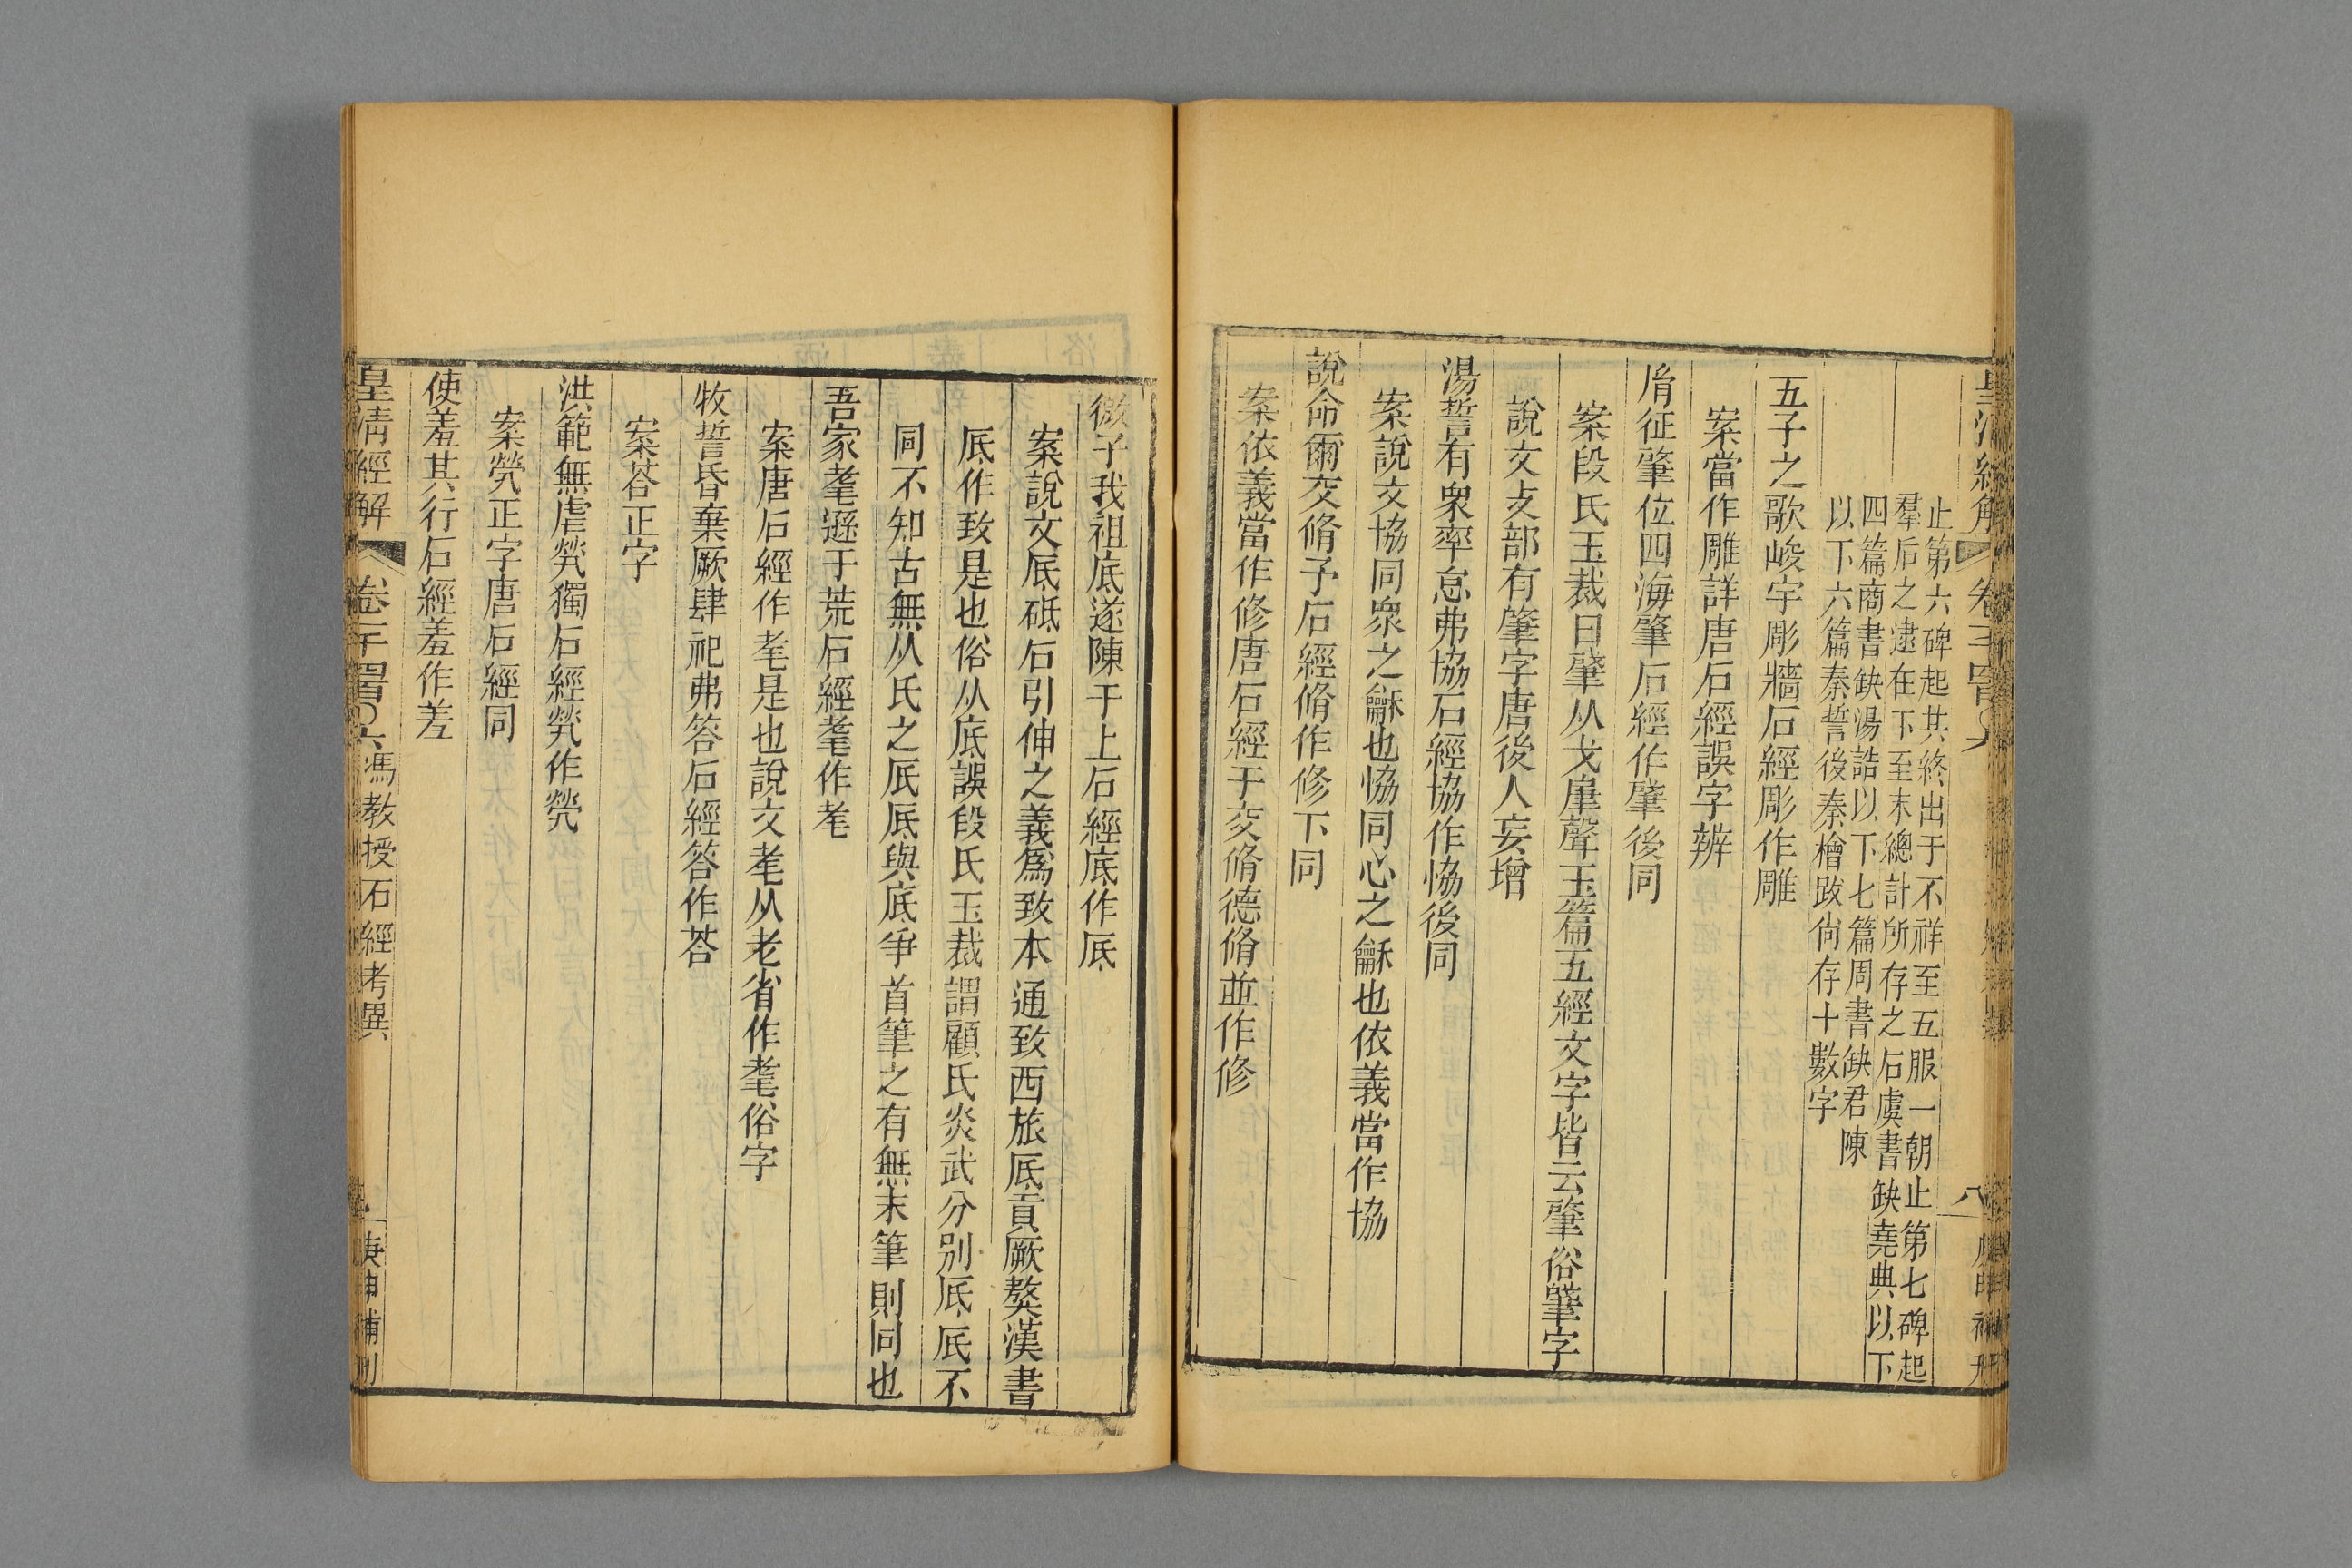 止第六碑起其終出于不祥至五服一朝止第七碑起
羣后之逮在下至末總計所存之石虞書缺堯典以下
四篇商書缺湯誥以下七篇周書缺君陳
以下六篇秦誓後秦檜跋尙存十數字
五子之歌峻宇彫牆石經彫作雕
案當作雕詳唐石經誤字辨
胤征肇位四海肇石經作肈後同
案段氏玉裁曰肈从戈肁聲玉篇五經文字皆云肇俗肈字
說文攴部有肇字唐後人妄增
湯誓有衆率怠弗協石經協作恊後同
案說文協同衆之龢也恊同心之龢也依義當作協
說命爾交脩予石經脩作修下同
案依義當作修唐石經于交脩德脩並作修
微子我祖底遂陳于上石經底作厎
案說文厎砥石引伸之義爲致本通致西旅厎貢厥獒漢書
厎作致是也俗从底誤段氏玉裁謂顧氏炎武分別厎底不
同不知古無从氏之厎厎與底爭首筆之有無末筆則同也
吾家耄遜于荒石經耄作耄
案唐石經作耄是也說文耄从老省作耄俗字
牧誓昏棄厥肆祀弗答石經答作荅
案荅正字
洪範無虐煢獨石經煢作㷀
案煢正字唐石經同
使羞其行石經羞作𦍌
皇淸經解
卷一千四百〇六馮教授石經考異
庚申補刊